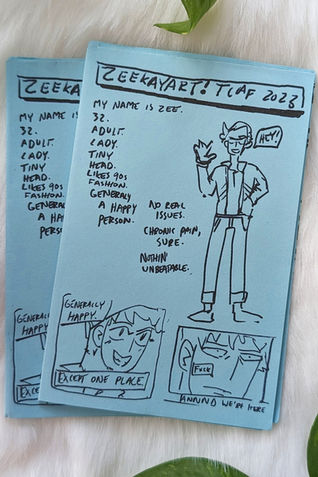 ZEEKAYART! TLAF 2023
MY NAME IS ZEE.
32.
ADULT.
LADY.
TINY
HEAD.
LIKES 90s
FASHION.
GENERALY
A HAPPY
PERSON.
HEY!
NO REAL
ISSUES.
CHRONIC PAIN,
SURE.
NOTHIN'
UNBEATABLE.
GENERALLY
HAPPY.
EXCEPT ONE PLACE.
FUCK
ANNND WE'RE HERE
ZEEKA
MY NAME IS
32.
ADULT.
LADY.
TINY
HEAD.
LIKES 90s
FASHION.
GENERA
A HA
PERS
GENERALLY
HAPPY.
EXCEPT